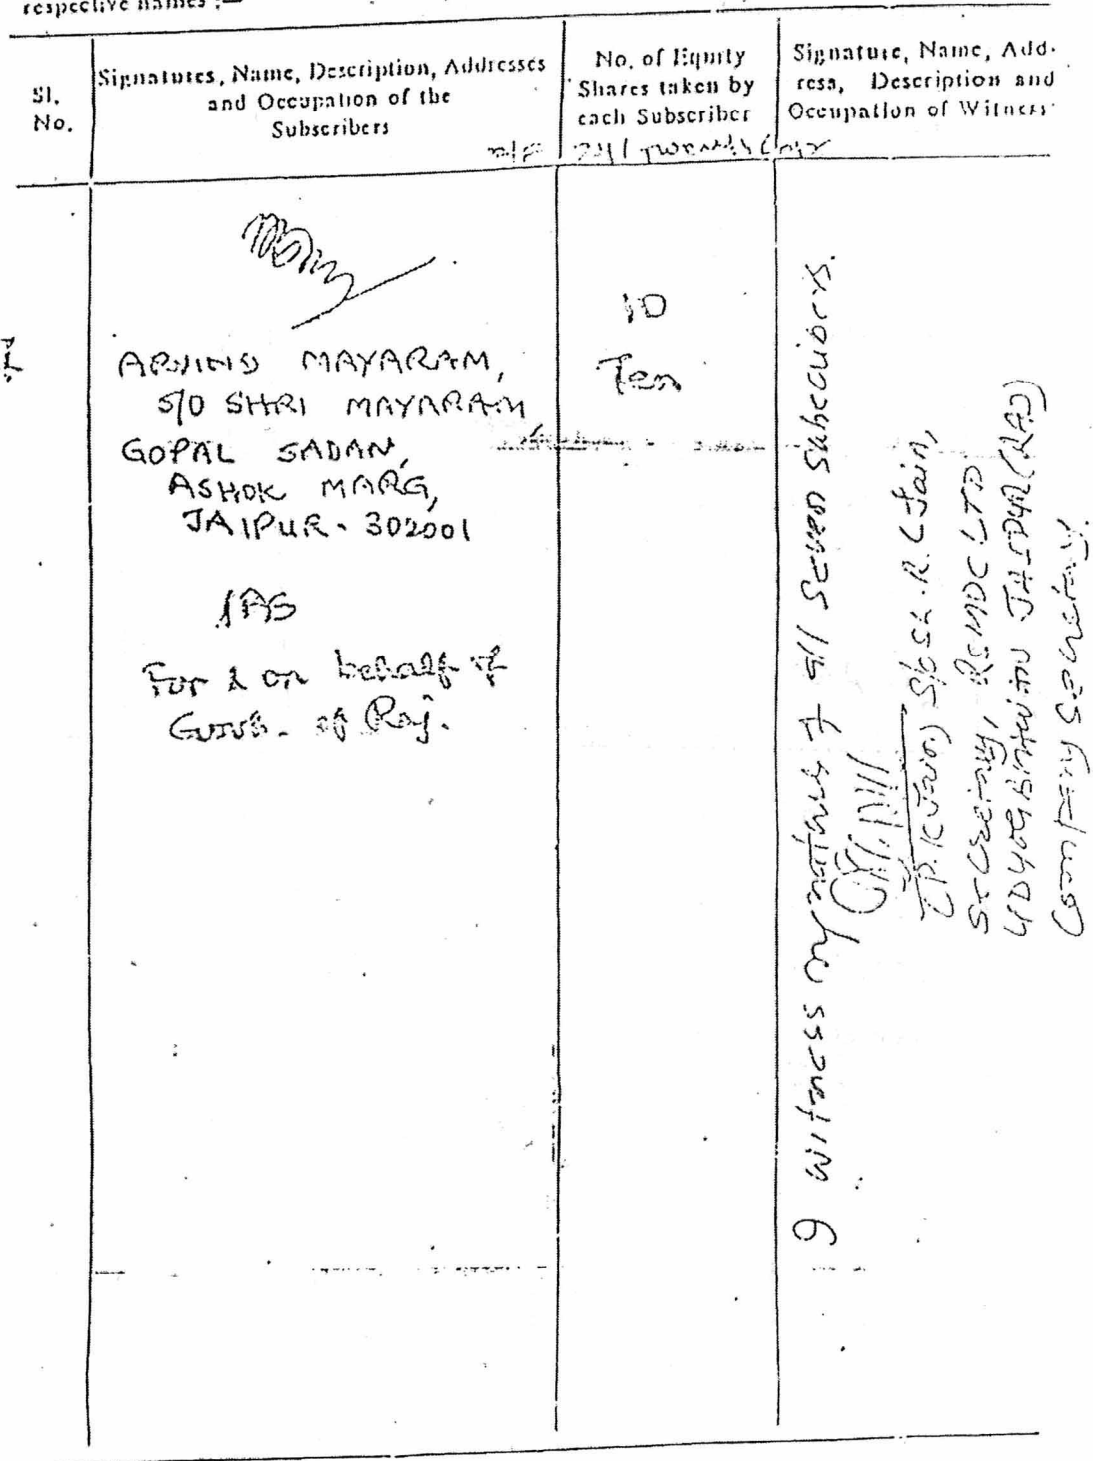 respective names :—
Sl.
No.
Signatures, Name, Description, Addresses
and Occupation of the
Subscribers
No. of Equity
Shares taken by
each Subscriber
Signature, Name, Add-
ress, Description and
Occupation of Witness
ARVIND MAYARAM,
S/O SHRI MAYARAM,
GOPAL SADAN,
ASHOK MARG,
JAIPUR - 302001
IAS
For & on behalf of
Govt. of Raj.
10
Ten
I witness signatures of all seven subscribers.
(P.K Jain) S/o Sh. R.C Jain,
Secretary, RSMDC LTD
UDYOG BHAWAN JAIPUR (RAJ)
Company Secretary.